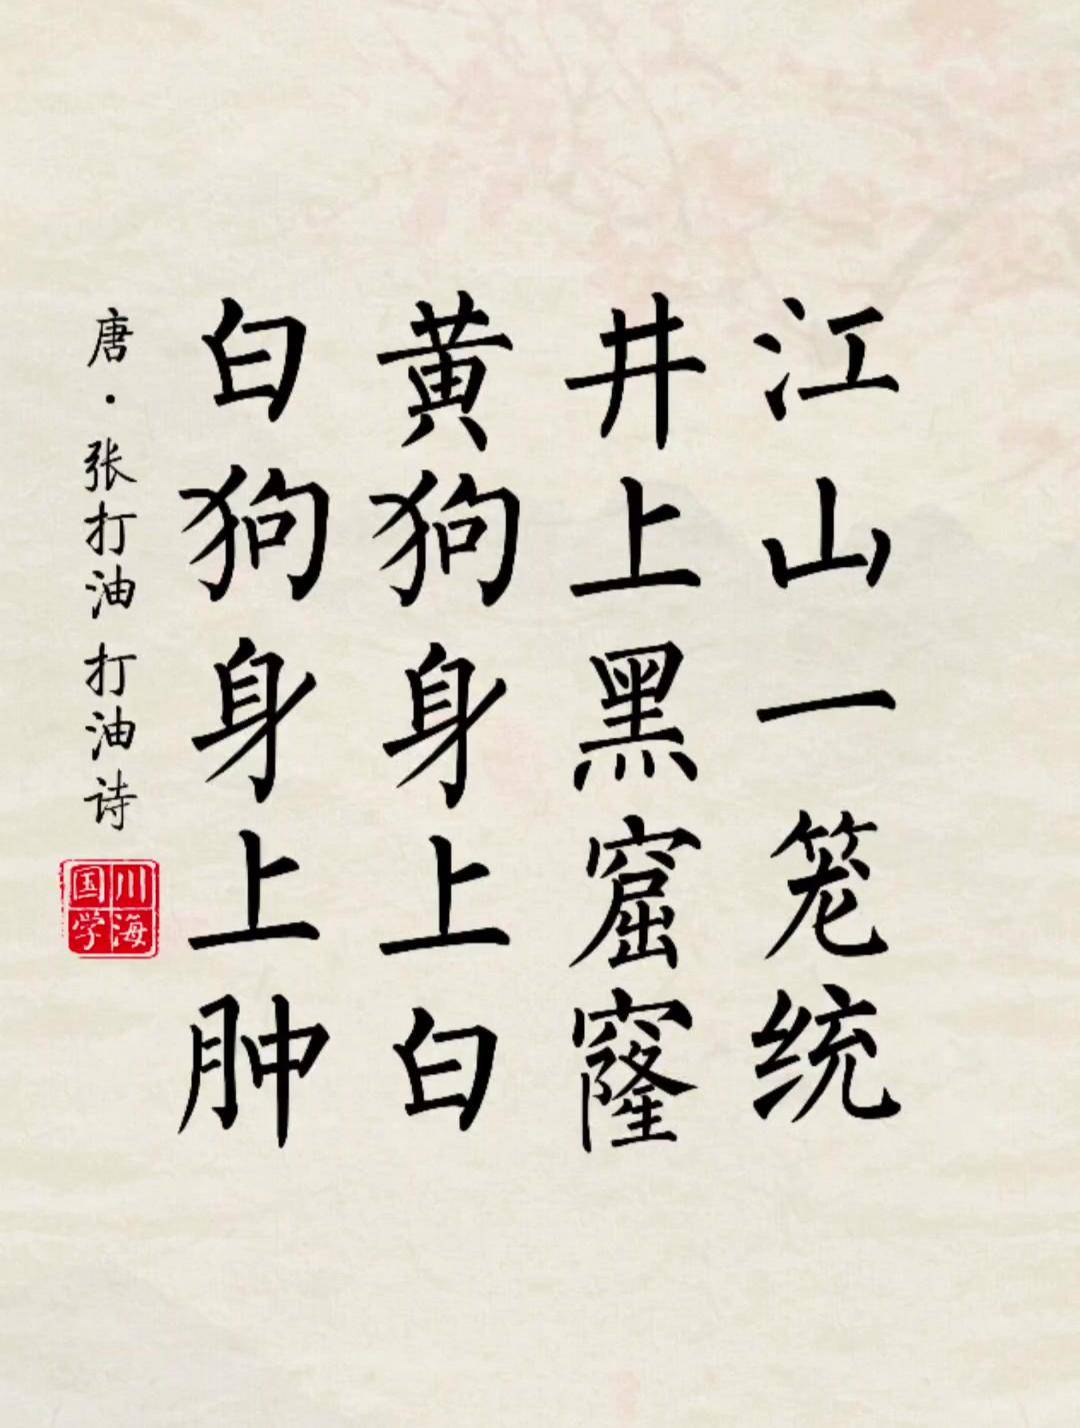 江山一笼统
井上黑窟窿
黄狗身上白
白狗身上肿
唐·张打油 打油诗
川海国学